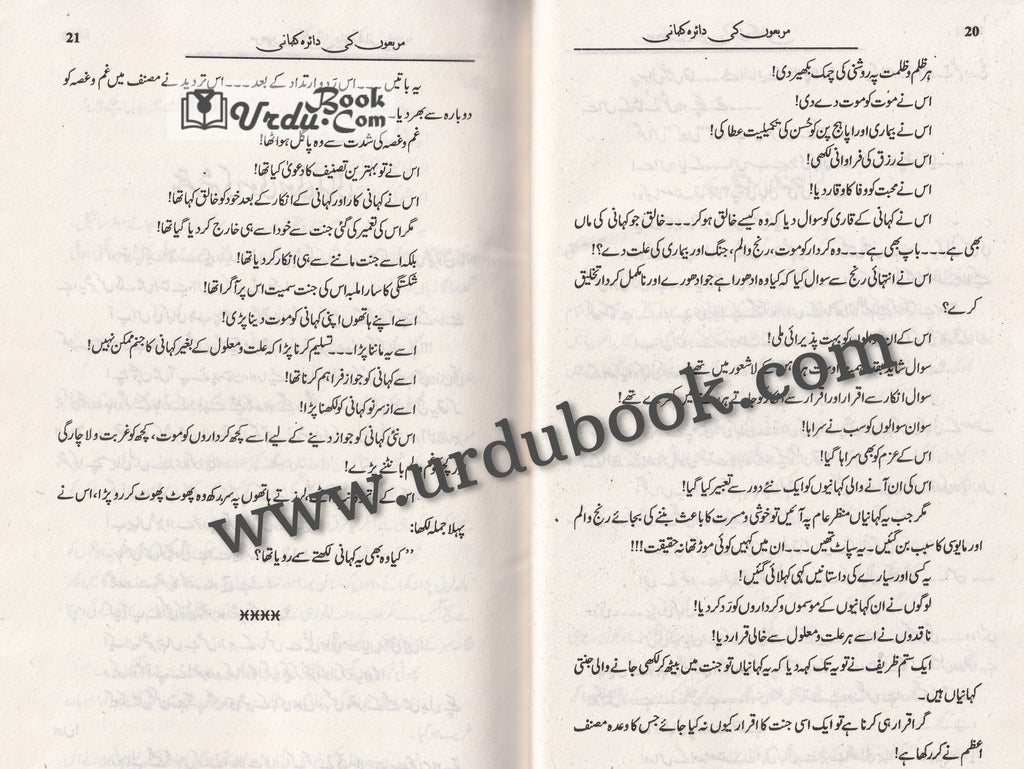 20
مربعوں کی دائرہ کہانی
ہر ظلم و ظلمت پہ روشنی کی چمک بکھیر دی!
اس نے موت کو موت دے دی!
اس نے بیماری اور اپاہج پن کو حُسن کی تکمیلیت عطا کی!
اس نے رزق کی فراوانی لکھی!
اس نے محبت کو وفا کا وقار دیا!
اس نے کہانی کے قاری کو سوال دیا کہ وہ کیسے خالق ہو کر۔۔۔ خالق جو کہانی کی ماں
بھی ہے۔۔۔ باپ بھی ہے۔۔۔ وہ کردار کو موت، رنج و الم، جنگ اور بیماری کی علت دے؟!
اس نے انتہائی رنج سے سوال کیا کہ کیا وہ ادھورا ہے جو ادھورے اور نامکمل کردار تخلیق
کرے؟
اس کے ان سوالوں کو بہت پذیرائی ملی!
سوال شاید لاشعور میں تھے
سوال انکار سے اقرار اور اقرار سے تھے!
سو ان سوالوں کو سب نے سراہا!
اس کے عزم کو بھی سراہا گیا!
اس کی ان آنے والی کہانیوں کو ایک نئے دور سے تعبیر کیا گیا!
مگر جب یہ کہانیاں منظر عام پہ آئیں تو خوشی و مسرت کا باعث بننے کی بجائے رنج و الم
اور مایوسی کا سبب بن گئیں۔ یہ سپاٹ تھیں۔۔۔ ان میں کہیں کوئی موڑ تھا نہ حقیقت!!!
یہ کسی اور سیارے کی داستانیں کہی کہلائی گئیں!
لوگوں نے ان کہانیوں کے موسموں و کرداروں کو رَد کر دیا!
ناقدوں نے اسے ہر علت و معلول سے خالی قرار دیا!
ایک ستم ظریف نے تو یہ تک کہہ دیا کہ یہ کہانیاں تو جنت میں بیٹھ کر لکھی جانے والی جنتی
کہانیاں ہیں۔
گر اقرار ہی کرنا ہے تو ایک اسی جنت کا اقرار کیوں نہ کیا جائے جس کا وعدہ مصنف
اعظم نے کر رکھا ہے!
21
مربعوں کی دائرہ کہانی
یہ باتیں۔۔۔ اس رَد و ارتداد کے بعد۔۔۔ اس تردید نے مصنف میں غم و غصہ کو
دوبارہ سے بھر دیا۔
غم و غصہ کی شدت سے وہ پاگل ہوا تھا!
اس نے تو بہترین تصنیف کا دعویٰ کیا تھا!
اس نے کہانی کار اور کہانی کے انکار کے بعد خود کو خالق کہا تھا!
مگر اس کی تعمیر کی گئی جنت سے خود اسے ہی خارج کر دیا گیا تھا!
بلکہ اسے جنت ماننے سے ہی انکار کر دیا تھا!
شکستگی کا سارا ملبہ اس کی جنت سمیت اس پر آ گرا تھا!
اسے اپنے ہاتھوں اپنی کہانی کو موت دینا پڑی!
اسے یہ ماننا پڑا۔۔۔ تسلیم کرنا پڑا کہ علت و معلول کے بغیر کہانی کا جنم ممکن نہیں!
اسے کہانی کو جواز فراہم کرنا تھا!
اسے از سر نو کہانی کو لکھنا پڑا!
اس نئی کہانی کو جواز دینے کے لیے اسے کچھ کرداروں کو موت، کچھ کو غربت و لاچارگی
بانٹنے پڑے!
اس کے لرزتے ہاتھوں پہ سر رکھ وہ پھوٹ پھوٹ کر رو پڑا، اس نے
پہلا جملہ لکھا:
”کیا وہ بھی یہ کہانی لکھتے سے رویا تھا؟
××××
UrduBook.Com
www.urdubook.com